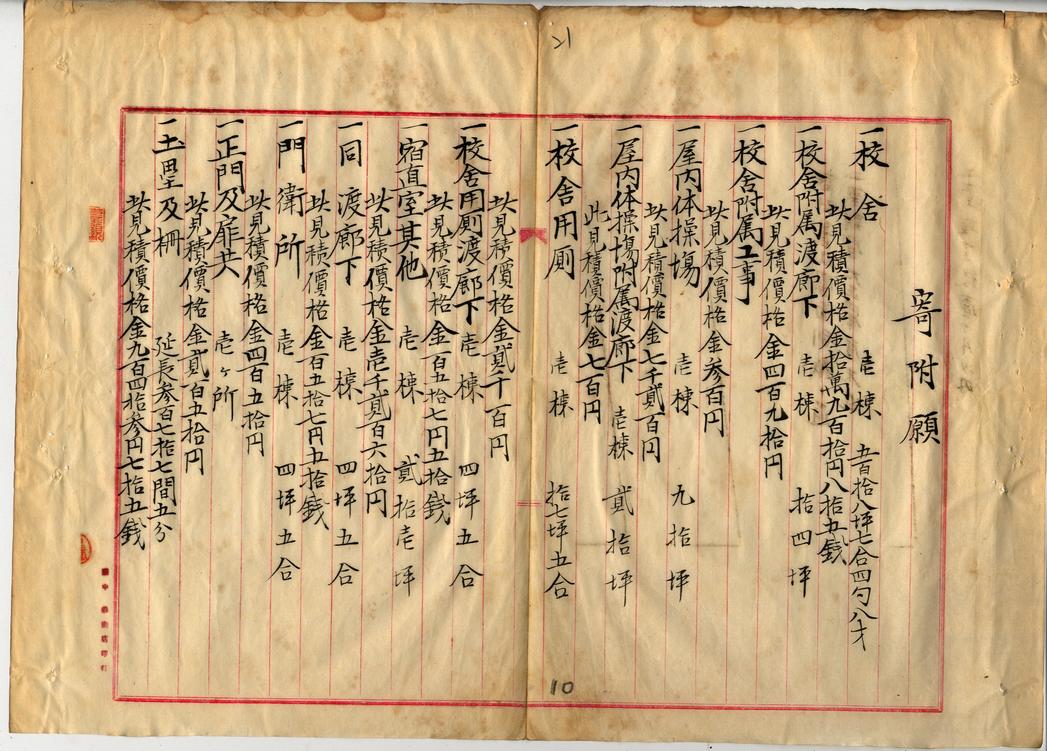 21
寄附願
一校舎 壱棟 五百拾八坪七合四勺八才
此見積價格金拾萬九百拾円八拾五銭
一校舎附属渡廊下 壱棟 拾四坪
此見積價格金四百九拾円
一校舎附属工事
此見積價格金参百円
一屋内体操場 壱棟 九拾坪
此見積價格金七千貳百円
一屋内体操場附属渡廊下 壱棟 貳拾坪
此見積價格金七百円
一校舎用厠 壱棟 拾七坪五合
此見積價格金貳千百円
一校舎用厠渡廊下 壱棟 四坪五合
此見積價格金百五拾七円五拾銭
一宿直室其他 壱棟 貳拾壱坪
此見積價格金壱千貳百六拾円
一同渡廊下 壱棟 四坪五合
此見積價格金百五拾七円五拾銭
一門衛所 壱棟 四坪五合
此見積價格金四百五拾円
一正門及扉共 壱ヶ所
此見積價格金貳百五拾円
一土塁及柵 延長参百七拾七間五分
此見積價格金九百四拾参円七拾五銭
10